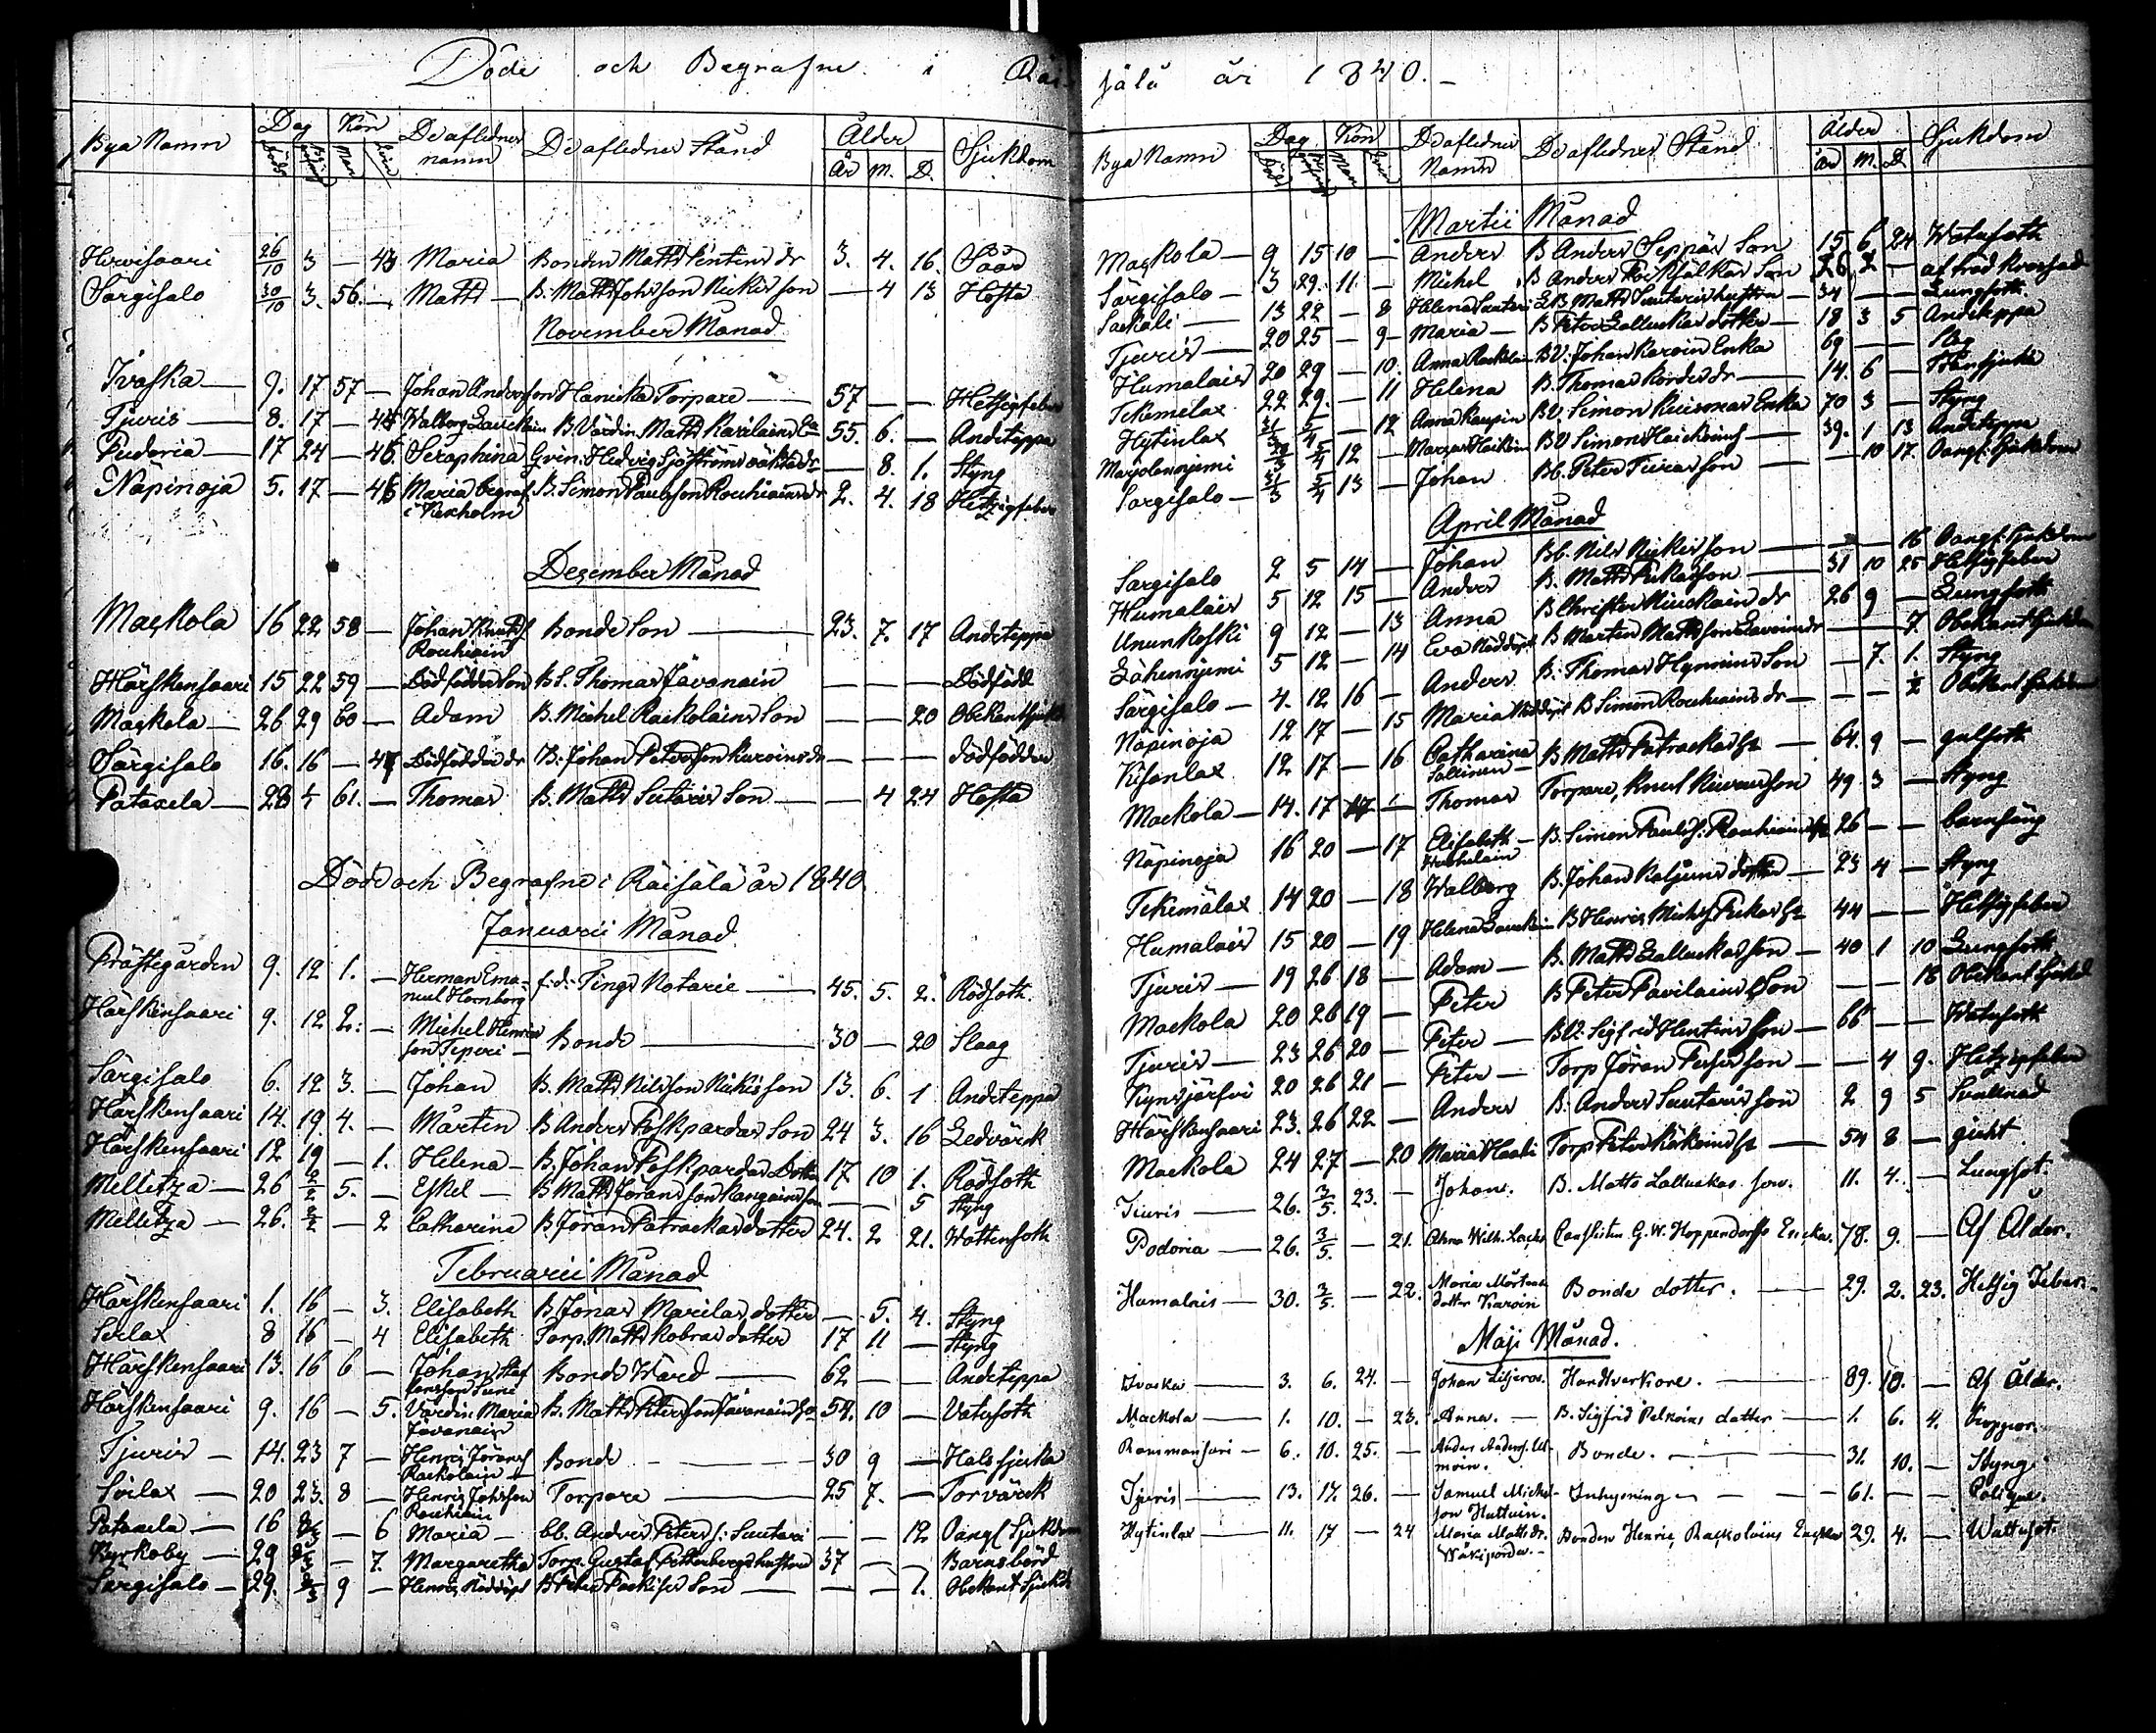 Döde och Begrafne i Räi-
Bya Namn Dag Kön De aflednes namn De aflednes Stånd Ålder Sjukdom
Döde Begrafne Man Qvin År M. D.
Hirvisaari 26/10 3 — 43 Maria Bonden Matts Pentins dr 3. 4. 16. Säär
Särgisalo 30/10 3. 56. — Matts — B. Matts Johsson Nickis son — 4 13 Hosta
November Månad
Ivaska — 9. 17 57 — Johan Andersson Hanicka Torpare — 57 — — Hetsigfeber
Tjuris — 8. 17 — 44 Walborg B. Värdin Matts 55. 6. — Andteppa
Puderia — 17 24 — 45 Seraphina Hedvig Sjöströms oäkta dr — 8. 1. Styng
Näpinoja 5. 17 — 46 Maria begraf. i Kexholm B. Simon Paulsson Rouhiains dr 2. 4. 18 Hetzigfeber
December Månad
Mackola 16 22 58 — Johan Knutss. Rouhiain Bonde Son — 23. 7. 17 Andteppa
Härskensaari 15 22 59 — Dödfödder Son B. S. Thomas Jävanain — — — Dödfödd
Mackola — 26 29 60 — Adam B. Michel Rackolains Son — — 20 Obekant sjukd.
Särgisalo 16. 16 — 47 Dödfödder dr B. Johan Petersson Kurvins dr — — — dödfödder
Pataxela — 28 61. — Thomas B. Matts Sutaris Son — — 4 24 Hosta
Döde och Begrafne i Räisälä år 1840
Januarii Månad
Prästegården 9. 12 1. — Herman Ema-
nuel Hornborg f.d. Tings Notarie — 45. 5. 2. Rödsoth.
Härskensaari 9. 12 2. — Michel Henrics
son Teperi — Bonde — 30 — 20 Slaag
Särgisalo 6. 12 3. — Johan B. Matts Nilsson Nickis son 13. 6. 1 Andteppa
Härskensaari 14. 19 4. — Mårten B Anders Poskpardas Son 24 3. 16 Ledvärck
Härskensaari 12 19 — 1. Helena — B. Johan Poskpardas Dotter 17 10 1. Rödsoth
Mellitza — 26 2/2 5. — Eskel — B Matts Jöransson Kangains son — — 5 Styng
Mellitza — 26. 2/2 — 2 Catharina B Jöran Patrackas dotter 24. 2 21. Wattensoth
Februarii Månad
Härskensaari 1. 16 — 3. Elisabeth B Jonas Marilas dotter — 5. 4. Styng
Särlax 8 16 — 4 Elisabeth Torp. Matts Kobras dotter 17 11 — Styng
Härskensaari 13. 16 6 — Johan Staf
fansson Suni Bonde Wärd — 62 — — Andteppa
Härskensaari 9. 16 — 5. Värdin Maria
Jävanain B. Matts Petersson Jävanains 54. 10 — Vatusoth
Tjuris — 14. 23 7 — Henric Jöranss
Rackolain — Bonde — 30 9 — Hals sjuka
Särlax — 20 23. 8 — Henric Johsson
Rouhiain Torpare — 25 7. — Torvärck
Pataxela — 16 — 6 Maria — bb. Anders Peters s. Suutari — — 12 Oangf. Sjukdom
Kyrkoby — 29 — 7. Margaretha Torp. Gustaf Petterbergs hustru 37 — — Barnsbörd
Särgisalo — 29. 9 — Henric Nöddöpt B Peter Packises Son — — — 1. Obekant Sjukd.
sälä år 1840. —
Bya Namn Dag Kön De aflednes Namn De aflednes Stånd Ålder Sjukdom
Död Begrafne Man Qvin År M. D
Martii Månad
Mackola — 9 15 10 — Anders B Anders Seppäs Son 15 6 24 Watusoth
Särgisalo — 3 29. 11. — Michel B Anders Son — af träd krossad
Sackali — 13 22 — 8 Helena Suutari B Matts Suutaris hustru — 34 — — Lungsoth.
Tjuris — 20 25 — 9 — Maria — B Peter Lalluckas dotter — 18 3 5 Andteppa
Humalais 20 29 — 10. Anna BV. Johan Karvin Enka 69 — —
Tekemelax 22 29. — 11 Helena B. Thomas Kordes dr — 14. 6 —
Hytinlax 31/3 5/4 — 12 Anna Kaupin BV. Simon Kuismas Enka 70 3 — Styng
Marjolanniemi 5/4 12 — BV Simon — 39. 1 13 Andteppa
Särgisalo — 31/3 5/4 13 — Johan Bb. Peter Turas Son — — 10 17. Oangf. Sjukdom
April Månad
Särgisalo 2 5 14 — Johan Bb. Nils Nickis son — — — 16 Oangf. Sjukdom
Humalais 5 12 15 — Anders B. Matts Puckas son — 31 10 25 Hetsigfeber
Ununkoski 9 12 — 13 Anna B Christer Kiuckain dr 26 9 — Lungsoth
Lähenniemi 5 12 — 14 Eva Nöddöpt B Mårten Mattsson dr — — 7. Obekant Sjukdom
Särgisalo — 4. 12 16 — Anders B. Thomas Hynnins Son — 7. 1. Styng
Näpinoja 12 17 — 15 Maria Nöddöpt B Simon Rouhiains dr — — — 1/2 Obekant sjukdom
Kisanlax 12 17 — 16 Catharina
Sallinen — B Matts Patrackas — 64. 9 — gulsoth
Mackola — 14. 17 17 — Thomas Torpare, Knut son 49 3 — Styng
Näpinoja 16 20 — 17 Elisabeth — B. Simon Paulss. Rouhiains 26 — — barnsäng
Tekemälax 14 20 — 18 Walborg B. Johan Kaljuns dotter — 23 4 — Styng
Humalais 15 20 — 19 Helena B Henric Michss Puckas 44 — — Hetsigfeber
Tjuris — 19 26 18 — Adam — B. Matts Lalluckas son — 40 1 10 Lungsoth
Mackola 20 26 19 — Peter B Peter Pavilains Son — — 18 Obekant Sjukd.
Tjuris — 23 26 20 — Peter — BV. Sigfrid Hentins son — 66 — — Watusoth
Kynsjärfvi 20 26 21 — Peter — Torp Jöran Persson son — — 4 9. Hetzigfeber
Härskensaari 23. 26 22 — Anders B. Anders Suutaris son 2 9 5 Svullnad
Mackola 24 27 — 20 Maria Haaki Torp Peter — 54 8 — gickt
Tiuris — 26. 3/5. 23. — Johan. B. Matts Lalluckas son. 11. 4. — Lungsot.
Podoria — 26. 3/5. — 21. Anna Wilh. G. W. Hoppendorffs Encka. 78. 9. — Af Ålder.
Humalais — 30. 3/5. — 22. Maria Mårtens
dotter Karvin Bonde dotter. — 29. 2. 23. Hetsig Feber.
Maji Månad.
Ivaska — 3. 6. 24. — Johan Liljeros. Handtverkare. — 89. 10. — Af Ålder.
Mackola — 1. 10. — 23. Anna. — B. Sigfrid Pelkoins dotter — 1. 6. 4. Koppor.
6. 10. 25. — Anders Anderss.
moin. Bonde. — 31. 10. — Styng.
Tjuris — 13. 17. 26. — Samuel Michel-
son Huttuin. Inhysning — 61. — —
Hytinlax — 11. 17 — 24 Maria Mattsdr.
Bonden Henric Rackolains Encka 29. 4. — Wattusot.